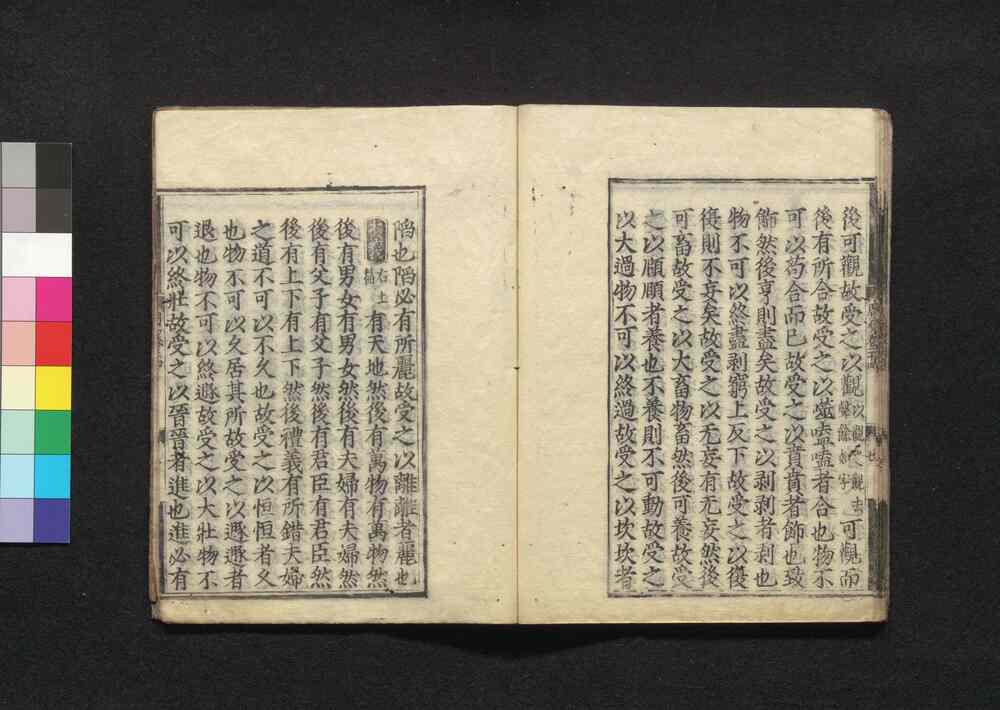 後可觀故受之以觀可觀而
後有所合故受之以噬嗑嗑者合也物不
可以茍合而已故受之以賁賁者飾也致
飾然後亨則盡矣故受之以剥剥者剥也
物不可以終盡剥窮上反下故受之以復
復則不妄矣故受之以无妄有无妄然後
可畜故受之以大畜物畜然後可養故受
之以頤頤者養也不養則不可動故受之
以大過物不可以終過故受之以坎坎者
陷也陷必有所麗故受之以離離者麗也
右上有天地然後有萬物有萬物然
後有男女有男女然後有夫婦有夫婦然
後有父子有父子然後有君臣有君臣然
後有上下有上下然後禮義有所錯夫婦
之道不可以不久也故受之以恒恒者久
也物不可以久居其所故受之以遯遯者
退也物不可以終遯故受之以大壯物不
可以終壯故受之以晉晉者進也進必有